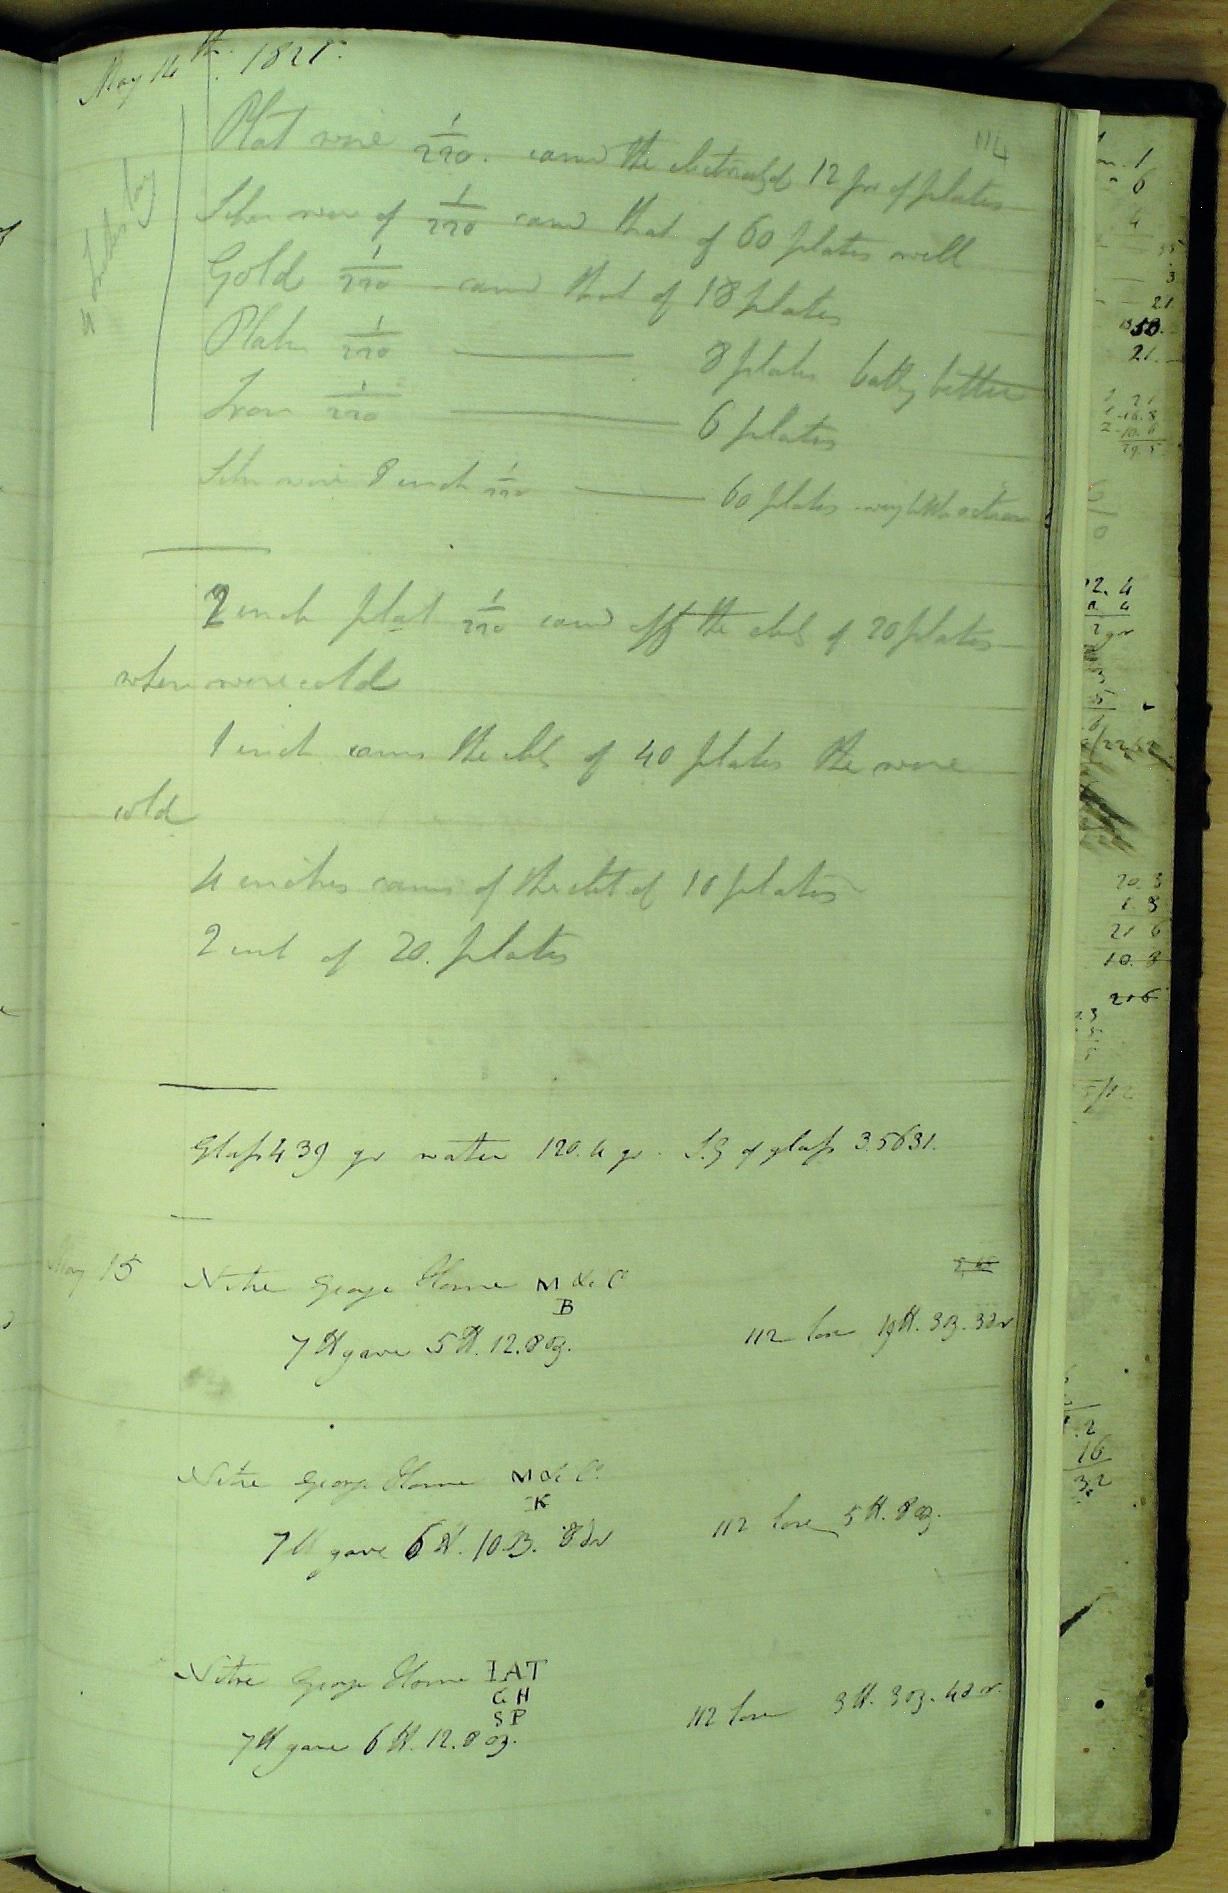 May 14th. 1821.
114
Plat wire 1/220. carried the electricity of 12 pr of plates
Silver wire of 1/220 carried that of 60 plates well
Gold 1/220 carried that of 18 plates
Platin 1/220 —— 8 plates battery better
Iron 1/220 —— 6 plates
Silver wire 8 inch 1/220 —— 60 plates
2 inch plat 1/220 carried off the elect of 20 plates
when wire cold
1 inch carries the elect of 40 plates the wire
cold
4 inches carries of the elect of 10 plates
2 inch of 20. plates
Glass 439 gr water 120.4 gr. S.G of glass 3.5631.
May 15 Nitre George Horne M & C
B
7 lb gave 5 lb. 12.8 oz. 112 lose 19 lb. 3 oz. 3 dr
Nitre George Horne M & C.
K
7 lb gave 6 lb. 10 oz. 8 dr 112 lose 5 lb. 8 oz.
Nitre George Horne IAT
GH
SP
7 lb gave 6 lb. 12.8 oz. 112 lose 3 lb. 3 oz. 4 dr.